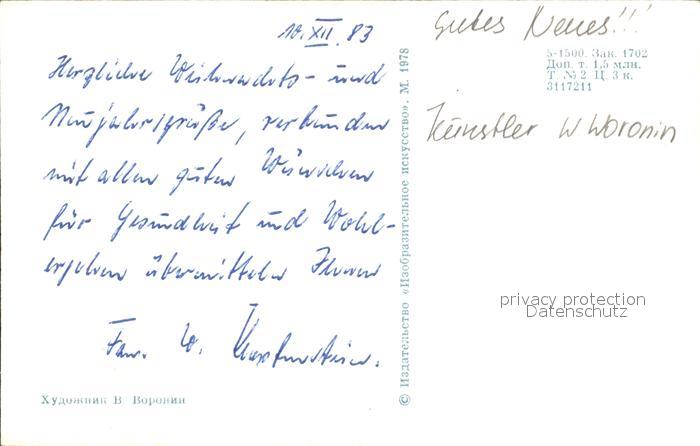 10.XII.83
Herzliche Weihnachts- und
Neujahrsgrüße, verbunden
mit allen guten Wünschen
für Gesundheit und Wohl-
ergehen übermitteln Ihnen
Fam. W.
Художник В. Воронин
© Издательство «Изобразительное искусство». М. 1978
Gutes Neues!!!
5-1500. Зак. 1702
Доп. т. 1,5 млн.
Т. № 2 Ц. 3 к.
3117211
Künstler W Woronin
privacy protection
Datenschutz